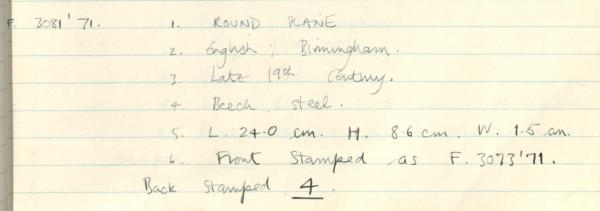 F. 3081'71. 1. ROUND PLANE
2. English; Birmingham.
3. Late 19th Century.
4 Beech, steel.
5. L. 24.0 cm. H. 8.6 cm. W. 1.5 cm.
6. Front Stamped as F. 3073'71.
Back Stamped 4.